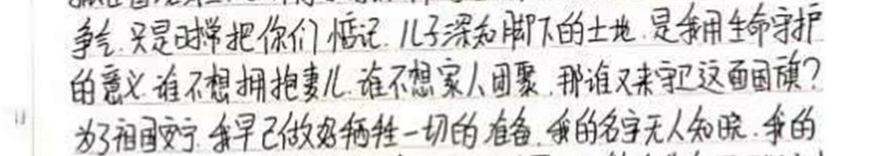 争气.只是时常把你们惦记.儿子深知脚下的土地.是我用生命守护
的意义.谁不想拥抱妻儿.谁不想家人团聚.那谁又来守卫这面国旗?
为了祖国安宁.我早已做好牺牲一切的准备.我的名字无人知晓.我的